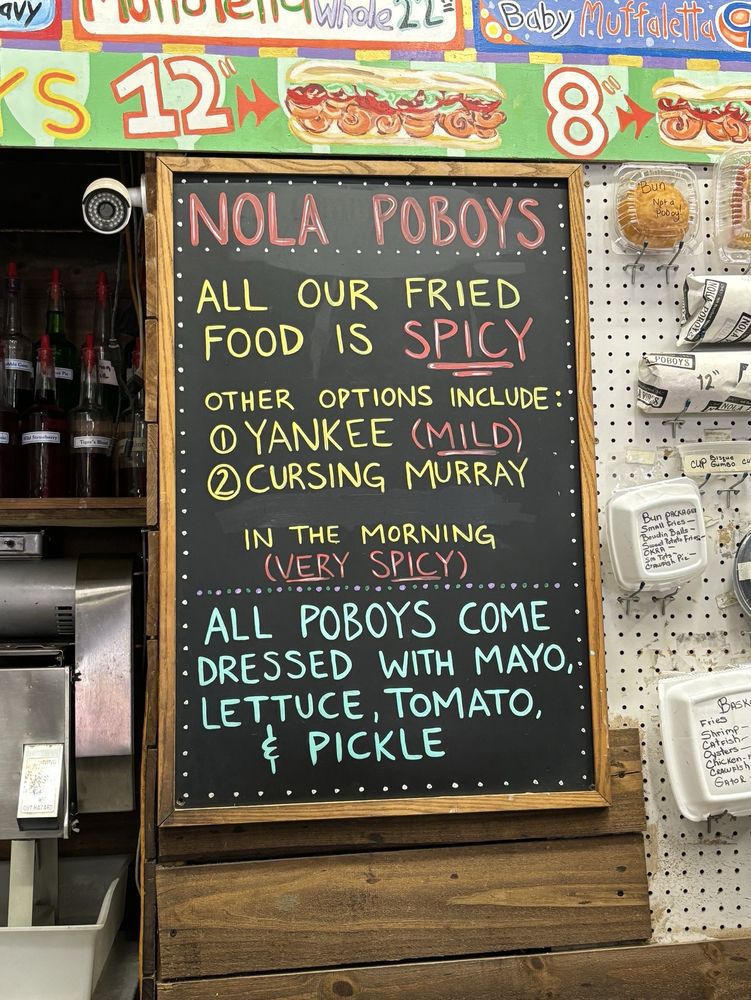 Muffuletta Whole 22
Baby Muffaletta 9
12"
8"
NOLA POBOYS
ALL OUR FRIED
FOOD IS SPICY
OTHER OPTIONS INCLUDE:
① YANKEE (MILD)
② CURSING MURRAY
IN THE MORNING
(VERY SPICY)
ALL POBOYS COME
DRESSED WITH MAYO,
LETTUCE, TOMATO,
& PICKLE
Bun
Not a
poboy!
POBOYS
12"
NOLA
CUP Bisque
Gumbo
Bun PACKAGE
Small Fries-
Boudin Balls-
Sweet Potato Fries-
OKRA-
Crawfish Pie-
Fries
Shrimp-
Catfish-
Oysters-
Chicken-
Crawfish
Gator
Wild Strawberry
Tiger's Blood